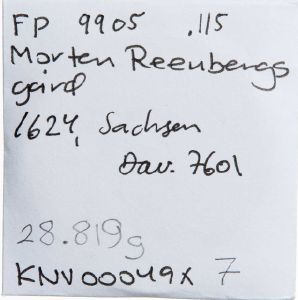 FP 9905 .115
Morten Reenbergs
gård
1624, Sachsen
Dav. 7601
28.819g
KNV00049x 7